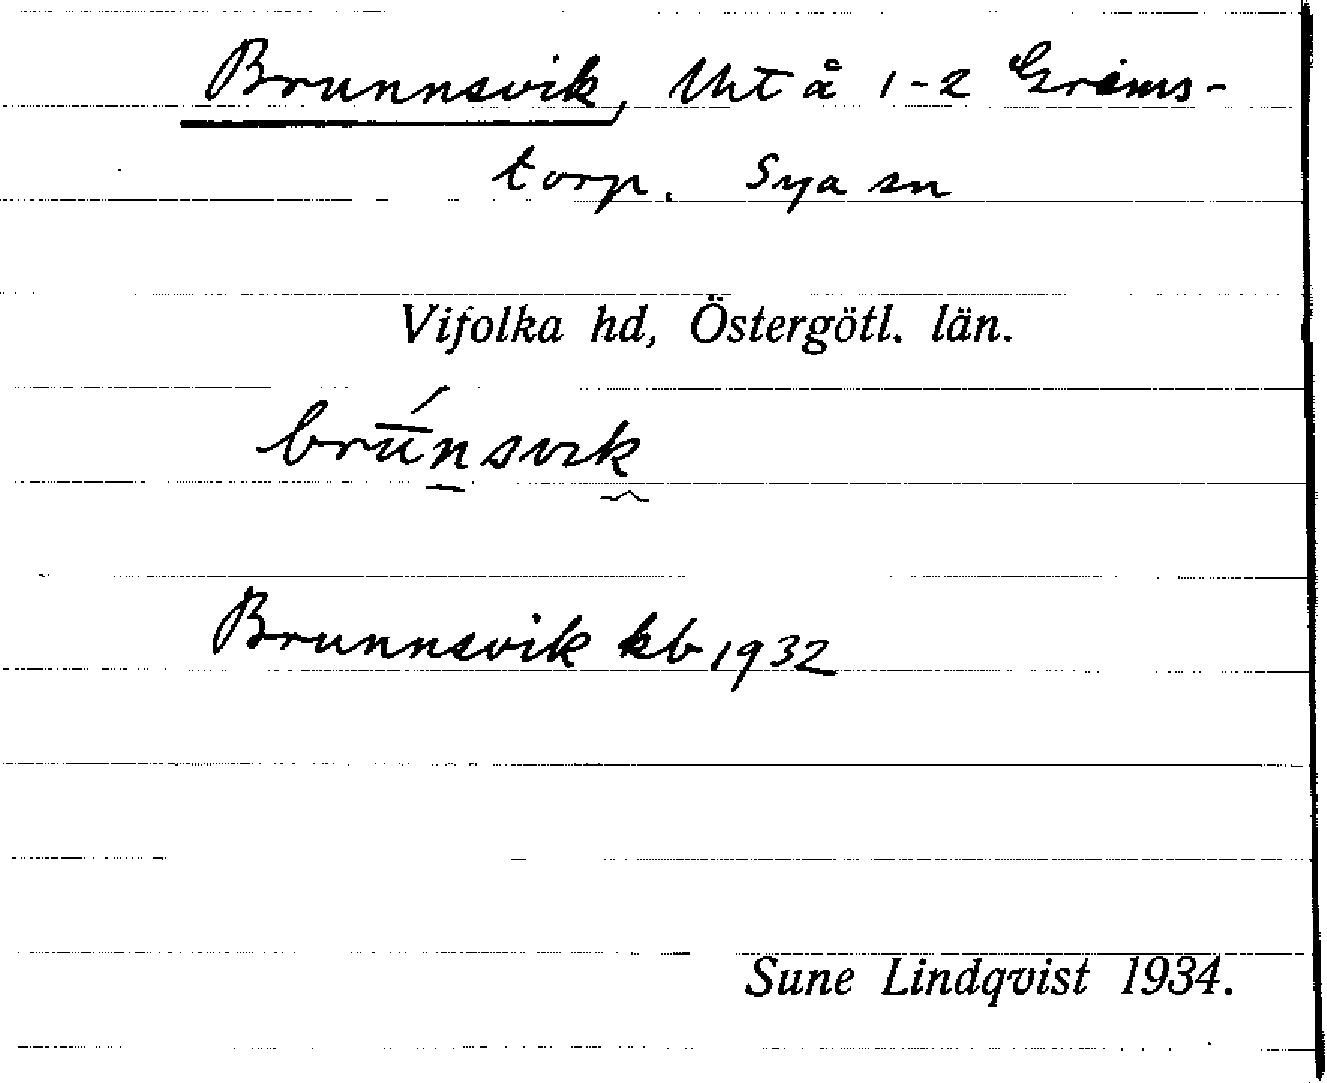 Brunnsvik, Uht å 1-2 Grims-
torp. Sya sn
Vifolka hd, Östergötl. län.
brū́nsvik
Brunnsvik kb 1932
Sune Lindqvist 1934.